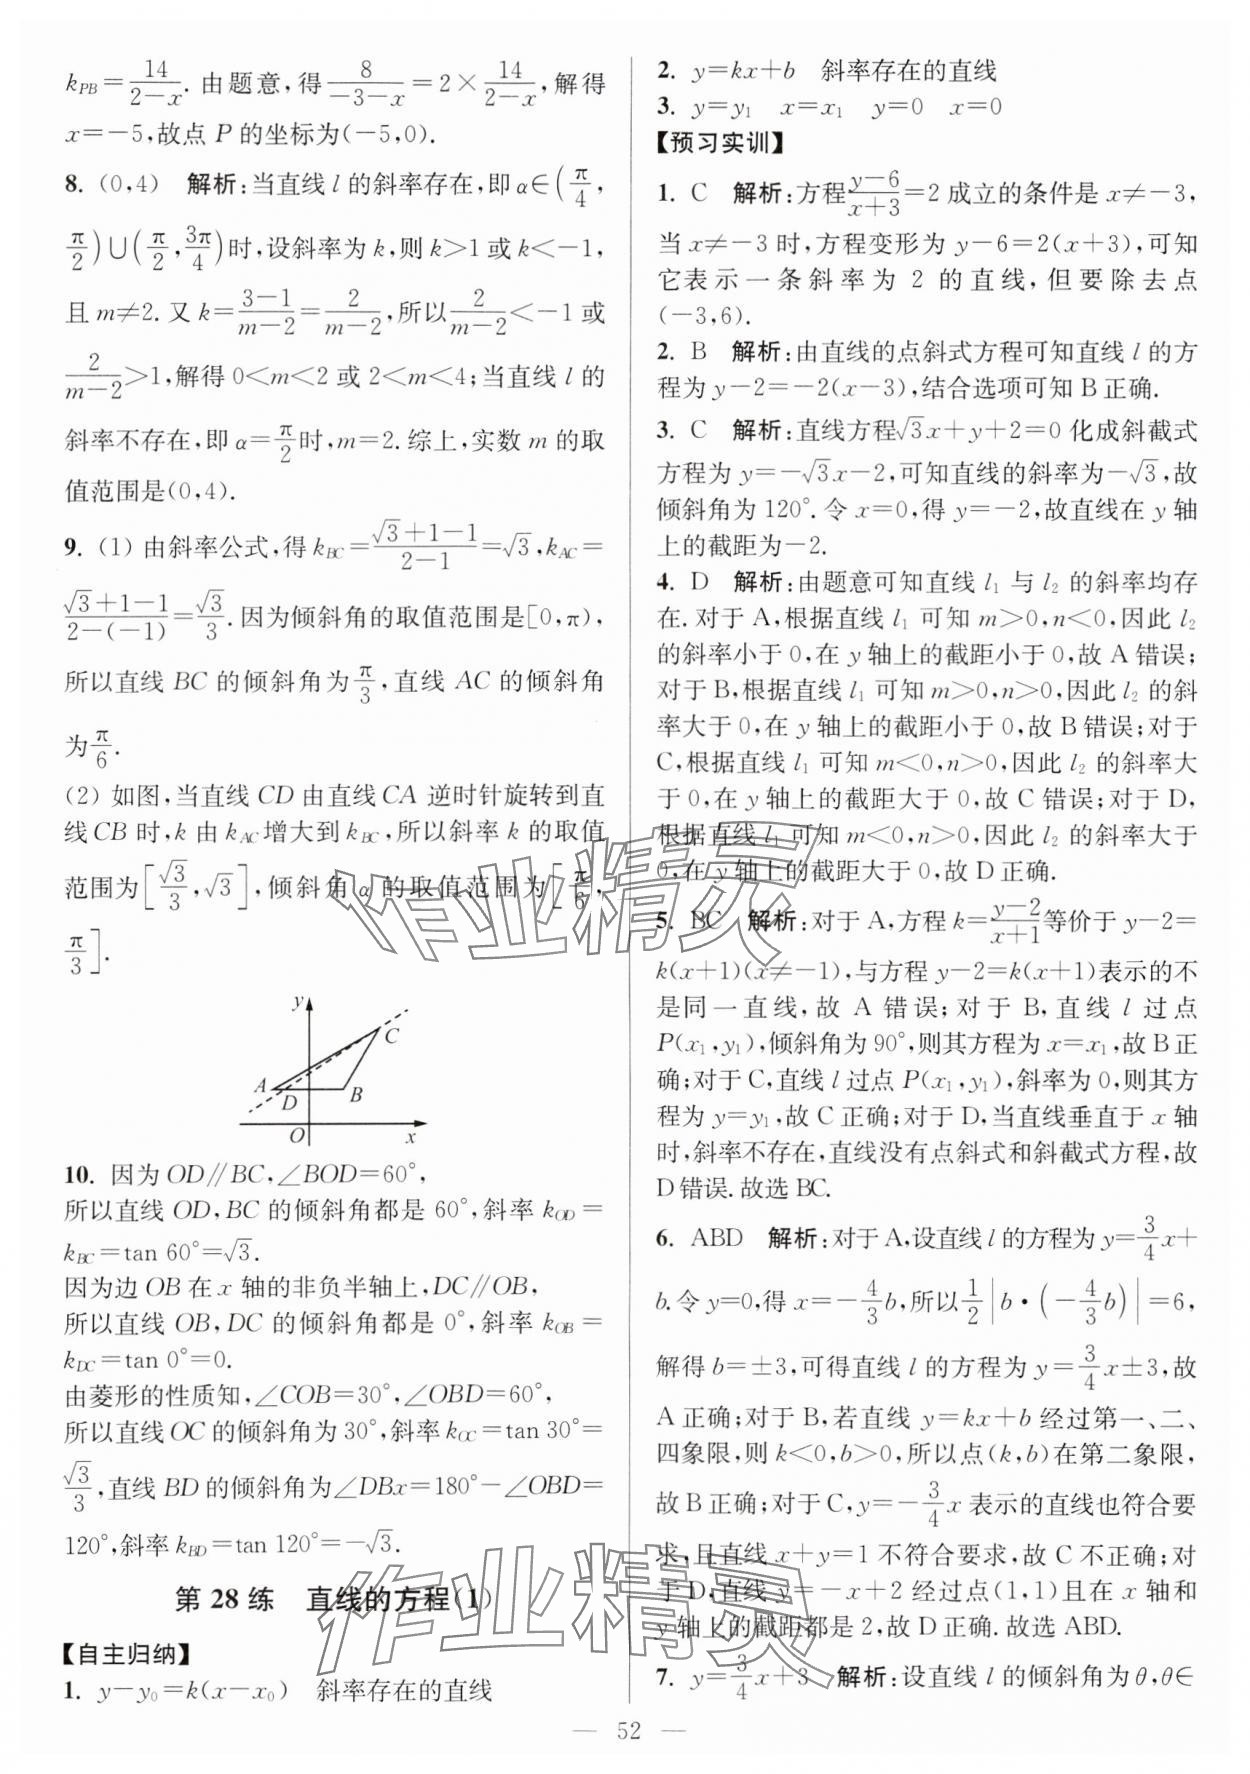 k_{PB}=\frac{14}{2-x}.由题意,得\frac{8}{-3-x}=2×\frac{14}{2-x},解得
x=-5,故点 P 的坐标为(-5,0).
8. (0,4)　解析:当直线 l 的斜率存在,即 α∈(\frac{π}{4},
\frac{π}{2})∪(\frac{π}{2},\frac{3π}{4})时,设斜率为 k,则 k>1 或 k<-1,
且 m≠2.又 k=\frac{3-1}{m-2}=\frac{2}{m-2},所以\frac{2}{m-2}<-1 或
\frac{2}{m-2}>1,解得 0<m<2 或 2<m<4;当直线 l 的
斜率不存在,即 α=\frac{π}{2}时,m=2.综上,实数 m 的取
值范围是(0,4).
9. (1) 由斜率公式,得 k_{BC}=\frac{√3+1-1}{2-1}=√3,k_{AC}=
\frac{√3+1-1}{2-(-1)}=\frac{√3}{3}.因为倾斜角的取值范围是[0,π),
所以直线 BC 的倾斜角为\frac{π}{3},直线 AC 的倾斜角
为\frac{π}{6}.
(2) 如图,当直线 CD 由直线 CA 逆时针旋转到直
线 CB 时,k 由 k_{AC}增大到 k_{BC},所以斜率 k 的取值
范围为[\frac{√3}{3},√3],倾斜角 α 的取值范围为[\frac{π}{6},
\frac{π}{3}].
y
C
A
D
B
O
x
10. 因为 OD∥BC,∠BOD=60°,
所以直线 OD,BC 的倾斜角都是 60°,斜率 k_{OD}=
k_{BC}=tan 60°=√3.
因为边 OB 在 x 轴的非负半轴上,DC∥OB,
所以直线 OB,DC 的倾斜角都是 0°,斜率 k_{OB}=
k_{DC}=tan 0°=0.
由菱形的性质知,∠COB=30°,∠OBD=60°,
所以直线 OC 的倾斜角为 30°,斜率 k_{OC}=tan 30°=
\frac{√3}{3},直线 BD 的倾斜角为∠DBx=180°-∠OBD=
120°,斜率 k_{BD}=tan 120°=-√3.
第 28 练　直线的方程(1)
【自主归纳】
1. y-y₀=k(x-x₀)　斜率存在的直线
2. y=kx+b　斜率存在的直线
3. y=y₁　x=x₁　y=0　x=0
【预习实训】
1. C　解析:方程\frac{y-6}{x+3}=2 成立的条件是 x≠-3,
当 x≠-3 时,方程变形为 y-6=2(x+3),可知
它表示一条斜率为 2 的直线,但要除去点
(-3,6).
2. B　解析:由直线的点斜式方程可知直线 l 的方
程为 y-2=-2(x-3),结合选项可知 B 正确.
3. C　解析:直线方程√3x+y+2=0 化成斜截式
方程为 y=-√3x-2,可知直线的斜率为-√3,故
倾斜角为 120°.令 x=0,得 y=-2,故直线在 y 轴
上的截距为-2.
4. D　解析:由题意可知直线 l₁ 与 l₂ 的斜率均存
在.对于 A,根据直线 l₁ 可知 m>0,n<0,因此 l₂
的斜率小于 0,在 y 轴上的截距小于 0,故 A 错误;
对于 B,根据直线 l₁ 可知 m>0,n>0,因此 l₂ 的斜
率大于 0,在 y 轴上的截距小于 0,故 B 错误;对于
C,根据直线 l₁ 可知 m<0,n>0,因此 l₂ 的斜率大
于 0,在 y 轴上的截距大于 0,故 C 错误;对于 D,
根据直线 l₁ 可知 m<0,n>0,因此 l₂ 的斜率大于
0,在 y 轴上的截距大于 0,故 D 正确.
5. BC　解析:对于 A,方程 k=\frac{y-2}{x+1}等价于 y-2=
k(x+1)(x≠-1),与方程 y-2=k(x+1)表示的不
是同一直线,故 A 错误;对于 B,直线 l 过点
P(x₁,y₁),倾斜角为 90°,则其方程为 x=x₁,故 B 正
确;对于 C,直线 l 过点 P(x₁,y₁),斜率为 0,则其方
程为 y=y₁,故 C 正确;对于 D,当直线垂直于 x 轴
时,斜率不存在,直线没有点斜式和斜截式方程,故
D 错误.故选 BC.
6. ABD　解析:对于 A,设直线 l 的方程为 y=\frac{3}{4}x+
b.令 y=0,得 x=-\frac{4}{3}b,所以\frac{1}{2}|b·(-\frac{4}{3}b)|=6,
解得 b=±3,可得直线 l 的方程为 y=\frac{3}{4}x±3,故
A 正确;对于 B,若直线 y=kx+b 经过第一、二、
四象限,则 k<0,b>0,所以点(k,b)在第二象限,
故 B 正确;对于 C,y=-\frac{3}{4}x 表示的直线也符合要
求,且直线 x+y=1 不符合要求,故 C 不正确;对
于 D,直线 y=-x+2 经过点(1,1)且在 x 轴和
y 轴上的截距都是 2,故 D 正确.故选 ABD.
7. y=\frac{3}{4}x+3　解析:设直线 l 的倾斜角为 θ,θ∈
— 52 —
作业精灵
作业精灵